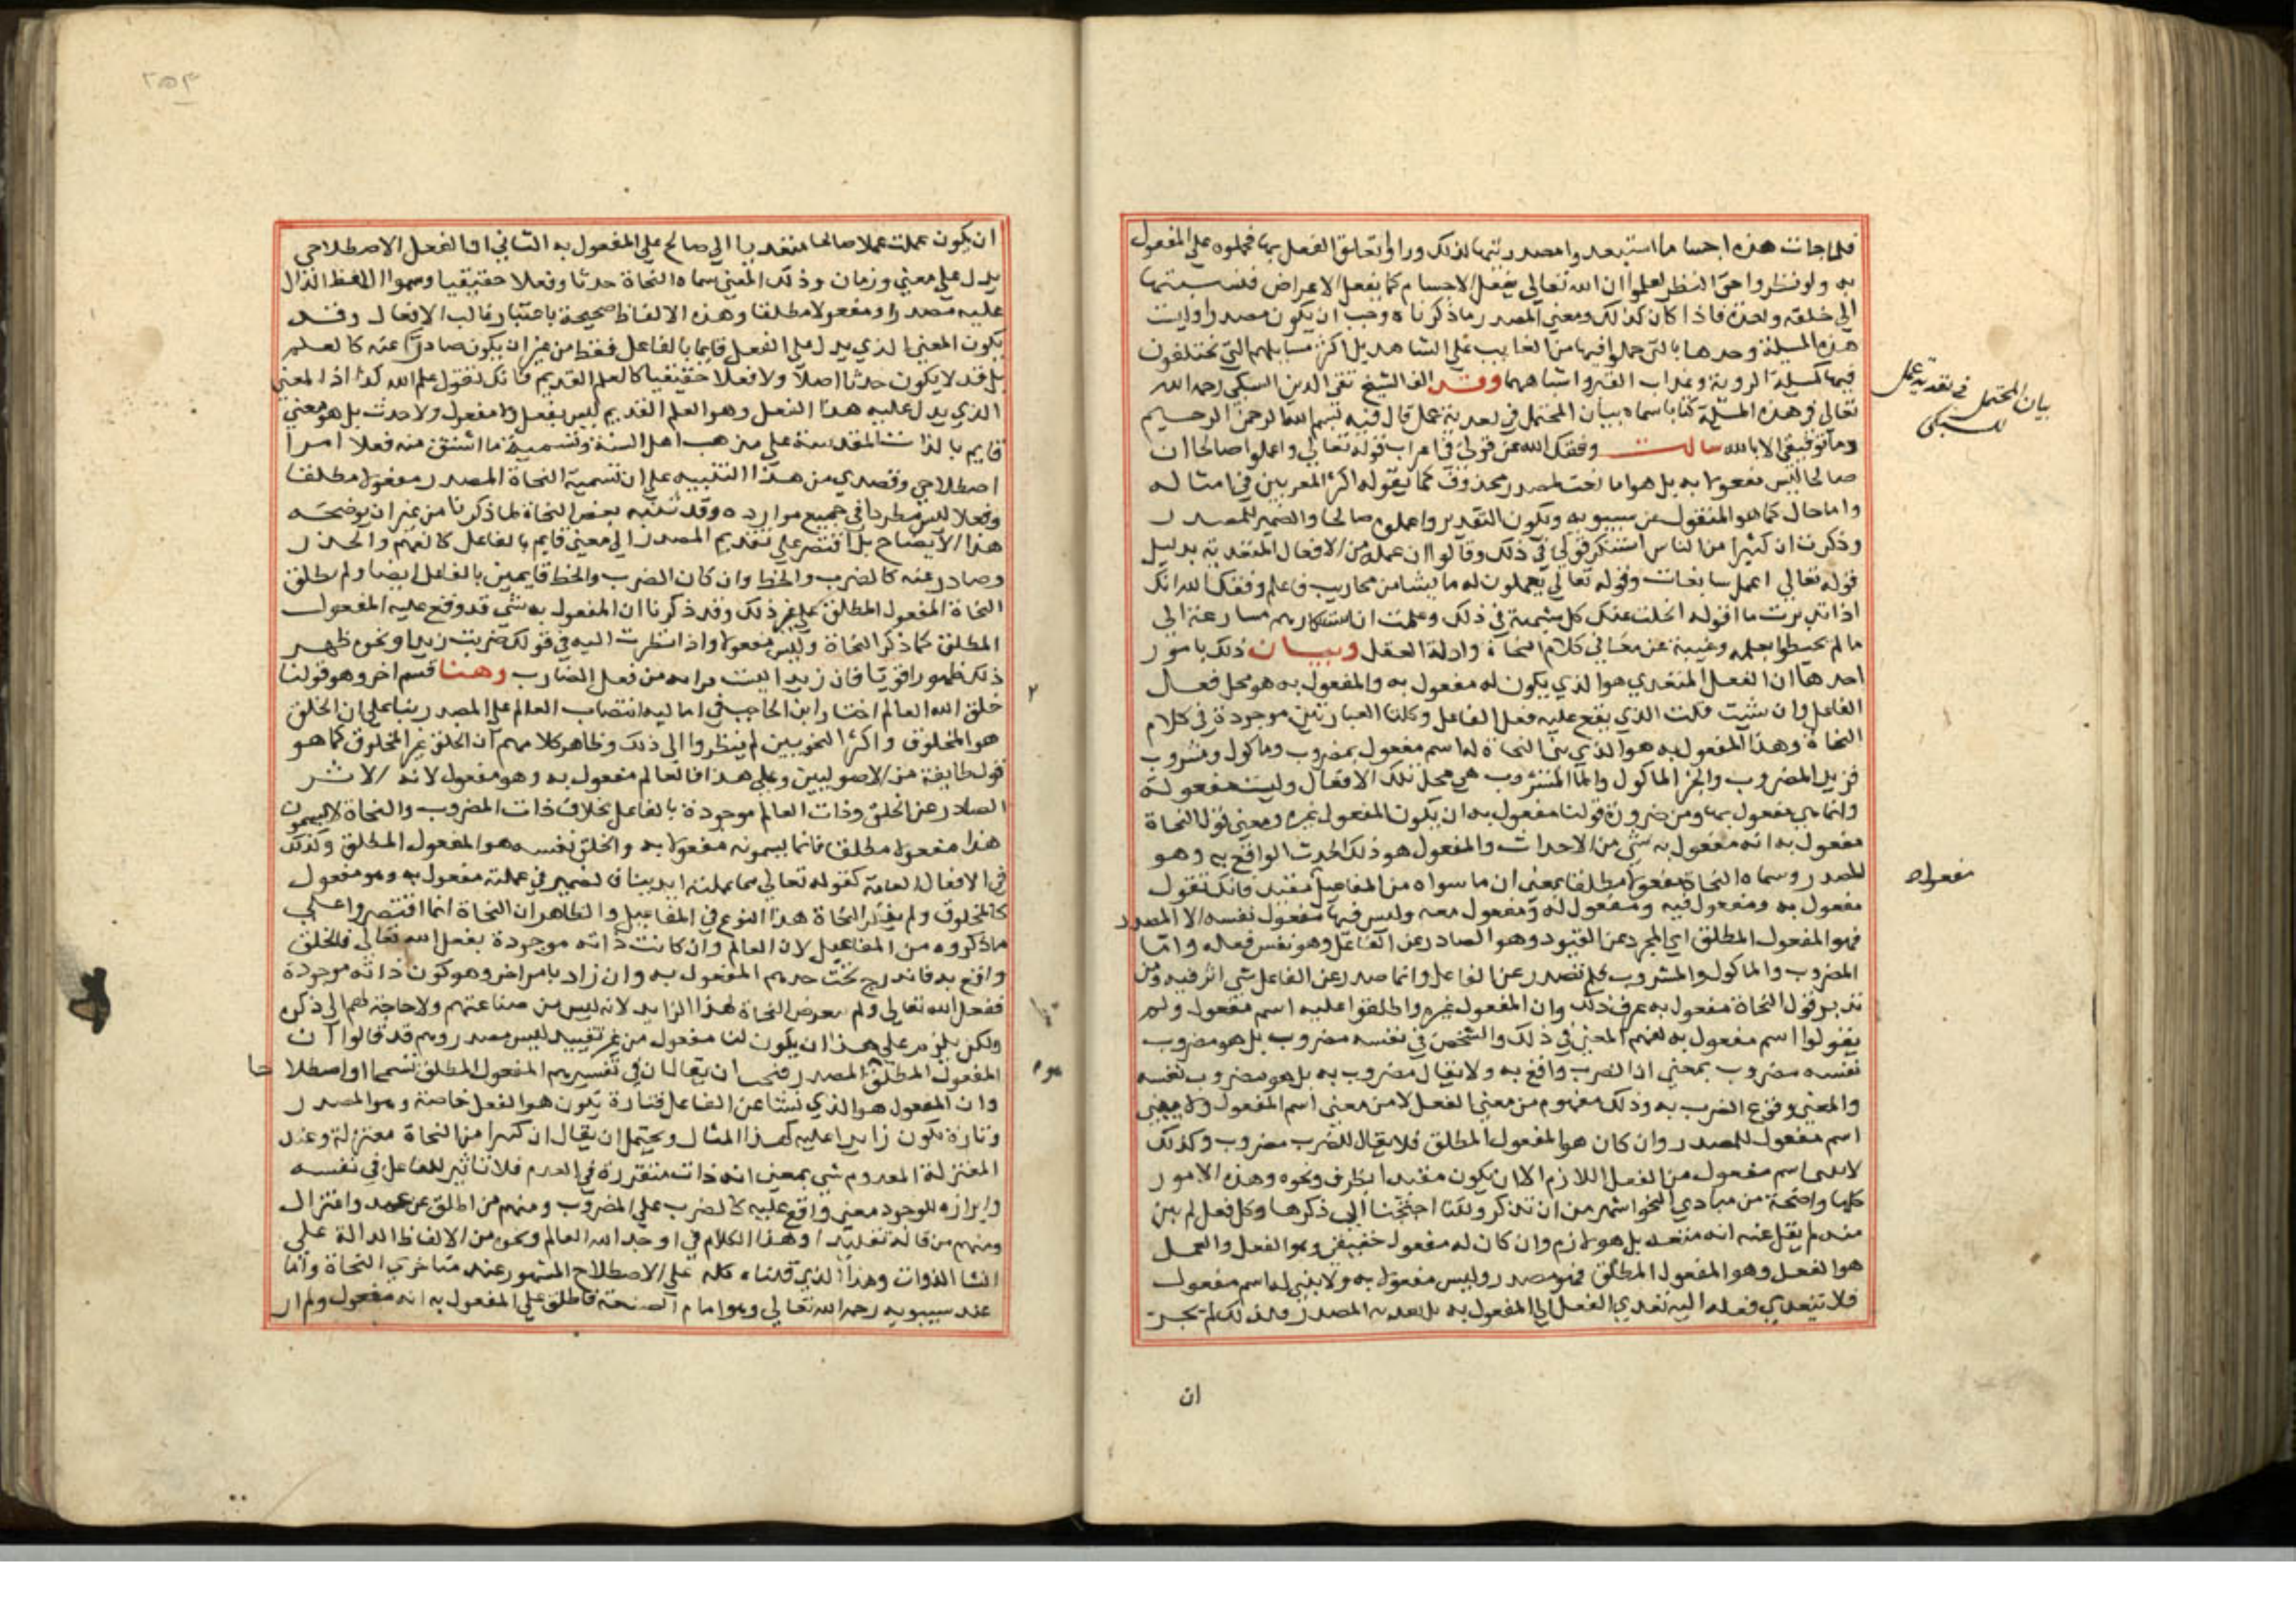 فلما جات هذه اجساما استبعدوا مصدريتها لذلك وراوا تعلق الفعل بها فحملوه على المفعول
به ولو نظروا حق النظر لعلموا ان الله تعالى يفعل الاجسام كما يفعل الاعراض فنسبتهما
الى خلقه واحدة فاذا كان كذلك ومعنى المصدر ما ذكرناه وجب ان يكون مصدرا وليست
هذه المسيلة وحدها بالتي حملوا فيها من الغايب على الشاهد بل اكثر مسايلهم التي يختلفون
فيها كمسيلة الروية وعذاب القبر واشباههما وقد الف الشيخ تقي الدين السبكي رحمه الله
تعالى في هذه المسيلة كتابا سماه بيان المحتمل في تعدية عمل قال فيه بسم الله الرحمن الرحيم
وما توفيقي الا بالله سالت وفقك الله عن قولي في اعراب قوله تعالى واعملوا صالحا ان
صالحا ليس مفعولا به بل هو اما نعت لمصدر محذوف كما يقوله اكثر المعربين في امثاله
واما حال كما هو المنقول عن سيبويه ويكون التقدير واعملوه صالحا والضمير للمصدر
وذكرت ان كثيرا من الناس استنكر قولي في ذلك وقالوا ان عمل من الافعال المتعدية بدليل
قوله تعالى اعمل سابغات وقوله تعالى يعملون له ما يشا من محاريب فاعلم وفقك الله انك
اذا تدبرت ما اقوله انحلت عنك كل شبهة في ذلك وعلمت ان استنكارهم مسارعة الى
ما لم يحيطوا بعلمه وغيبة عن معاني كلام النحاة وادلة العقل وبيان ذلك بامور
احدها ان الفعل المتعدي هو الذي يكون له مفعول به والمفعول به هو محل فعل
الفاعل وان شيت قلت الذي يقع عليه فعل الفاعل وكلتا العبارتين موجودة في كلام
النحاة وهذا المفعول به هو الذي بنى النحاة له اسم مفعول بمضروب وماكول ومشروب
فزيد المضروب والخبز الماكول والما المشروب هي محل تلك الافعال وليست مفعولة
وانما هي مفعول بها ومن ضرورة قولنا مفعول به ان يكون المفعول غيره ومعنى قول النحاة
مفعول به انه مفعول به شي من الاحداث والمفعول هو ذلك الحدث الواقع به وهو
المصدر وسماه النحاة مفعولا مطلقا بمعنى ان ما سواه من المفاعيل مقيد فانك تقول
مفعول به ومفعول فيه ومفعول له ومفعول معه وليس فيها مفعول نفسه الا المصدر
فهو المفعول المطلق اي المجرد عن القيود وهو الصادر عن الفاعل وهو نفس فعله واما
المضروب والماكول والمشروب فلم تصدر عن الفاعل وانما صدر عن الفاعل شي اثر فيه ومن
تدبر قول النحاة مفعول به عرف ذلك وان المفعول غيره واطلقوا عليه اسم مفعول ولم
يقولوا اسم مفعول به لفهم المعنى في ذلك والشخص في نفسه مضروب بل هو مضروب
نفسه مضروب بمعنى ان الضرب واقع به ولا يقال مضروب به بل هو مضروب نفسه
والمعنى وقوع الضرب به وذلك مفهوم من معنى الفعل لا من معنى اسم المفعول ولا يبنى
اسم مفعول للمصدر وان كان هو المفعول المطلق فلا يقال للضرب مضروب وكذلك
لا يبنى اسم مفعول من الفعل اللازم الا ان يكون مقيدا بظرف ونحوه وهذه الامور
كلها واضحة من مبادي النحو اشهر من ان تذكر ولكنا احتجنا الى ذكرها وكل فعل لم يبن
منه لم يقل عنه انه متعد بل هو لازم وان كان له مفعول حقيقي وهو الفعل والعمل
هو الفعل وهو المفعول المطلق فهو مصدر وليس مفعولا به ولا يبنى له اسم مفعول
فلا تتعدى فعله اليه تعدي الفعل الى المفعول به بل تعديه المصدر ولذلك لم تجز
ان
بيان المحتمل في تعدية عمل
للسبكي
مفعولاه
٢٥٣
ان يكون عملت عملا صالحا متعديا الى صالح على المفعول به الثاني ان الفعل الاصطلاحي
يدل على معنى وزمان وذلك المعنى سماه النحاة حدثا وفعلا حقيقيا وسموا اللفظ الدال
عليه مصدرا ومفعولا مطلقا وهذه الالفاظ صحيحة باعتبار غالب الافعال وقد
يكون المعنى الذي يدل على الفعل قايما بالفاعل فقط من غير ان يكون صادرا عنه كالعلم
بل قد لا يكون حدثا اصلا ولا فعلا حقيقيا كالعلم القديم فانك تقول علم الله كذا اذ المعنى
الذي يدل عليه هذا الفعل وهو العلم القديم ليس بفعل ولا مفعول ولا حدث بل هو معنى
قايم بالذات المقدسة على مذهب اهل السنة وتسمية ما اشتق منه فعلا امرا
اصطلاحي وقصدي من هذا التنبيه على ان تسمية النحاة المصدر مفعولا مطلقا
وفعلا ليس مطردا في جميع موارده وقد تنبه بعض النحاة لما ذكرنا من غير ان يوضحه
هذا الايضاح بل اقتصر على تقسيم المصدر الى معنى قايم بالفاعل كالفهم والحذر
وصادر عنه كالضرب والخط وان كان الضرب والخط قايمين بالفاعل ايضا ولم يطلق
النحاة المفعول المطلق على غير ذلك وقد ذكرنا ان المفعول به شي قد وقع عليه المفعول
المطلق كما ذكر النحاة وليس مفعولا واذا نظرت اليه في قولك ضربت زيدا ونحوه ظهر
ذلك ظهورا قويا فان زيدا ليست ذاته من فعل الضارب وهنا قسم اخر وهو قولنا
خلق الله العالم اختار ابن الحاجب في اماليه انتصاب العالم على المصدر بناء على ان الخلق
هو المخلوق واكثر النحويين لم ينظروا الى ذلك وظاهر كلامهم ان الخلق غير المخلوق كما هو
قول طايفة من الاصوليين وعلى هذا فالعالم مفعول به وهو مفعول لانه الاثر
الصادر عن الخلق وذات العالم موجودة بالفاعل بخلاف ذات المضروب والنحاة لا يسمون
هذا مفعولا مطلقا فانما يسمونه مفعولا به والخلق نفسه هو المفعول المطلق وكذلك
في الافعال العامة كقوله تعالى مما عملته ايدينا فالضمير في عملته مفعول به وهو مفعول
كالمخلوق ولم يفرد النحاة هذا النوع في المفاعيل والظاهر ان النحاة انما اقتصروا على
ما ذكروه من المفاعيل لان العالم وان كانت ذاته موجودة بفعل الله تعالى فالخلق
واقع به فاندرج تحت حدهم المفعول به وان زاد بامر اخر وهو كون ذاته موجودة
بفعل الله تعالى ولم يتعرض النحاة لهذا الزايد لانه ليس من صناعتهم ولا حاجة لهم الى ذكره
ولكن يلزم على هذا ان يكون لنا مفعول من غير تقييد ليس مصدر وهم قد قالوا ان
المفعول المطلق المصدر فيجب ان يقال ان في تفسيرهم المفعول المطلق تسمحا او اصطلاحا
وان المفعول هو الذي نشا عن الفاعل فتارة يكون هو الفعل خاصة وهو المصدر
وتارة يكون زايدا عليه كهذا المثال ويحتمل ان يقال ان كثيرا من النحاة معتزلة وعند
المعتزلة المعدوم شي بمعنى انه ذات متقررة في العدم فلا تاثير للفاعل في نفسه
وابرازه للوجود معنى واقع عليه كالضرب على المضروب ومنهم من اطلق عن عمد واعتزال
ومنهم من قاله تقليدا وهذا الكلام في اوجد الله العالم ونحوه من الالفاظ الدالة على
انشا الذوات وهذا الذي قلناه كله على الاصطلاح المشهور عند متاخري النحاة واما
عند سيبويه رحمه الله تعالى وهو امام الصنعة فاطلق على المفعول به انه مفعول ولم ار